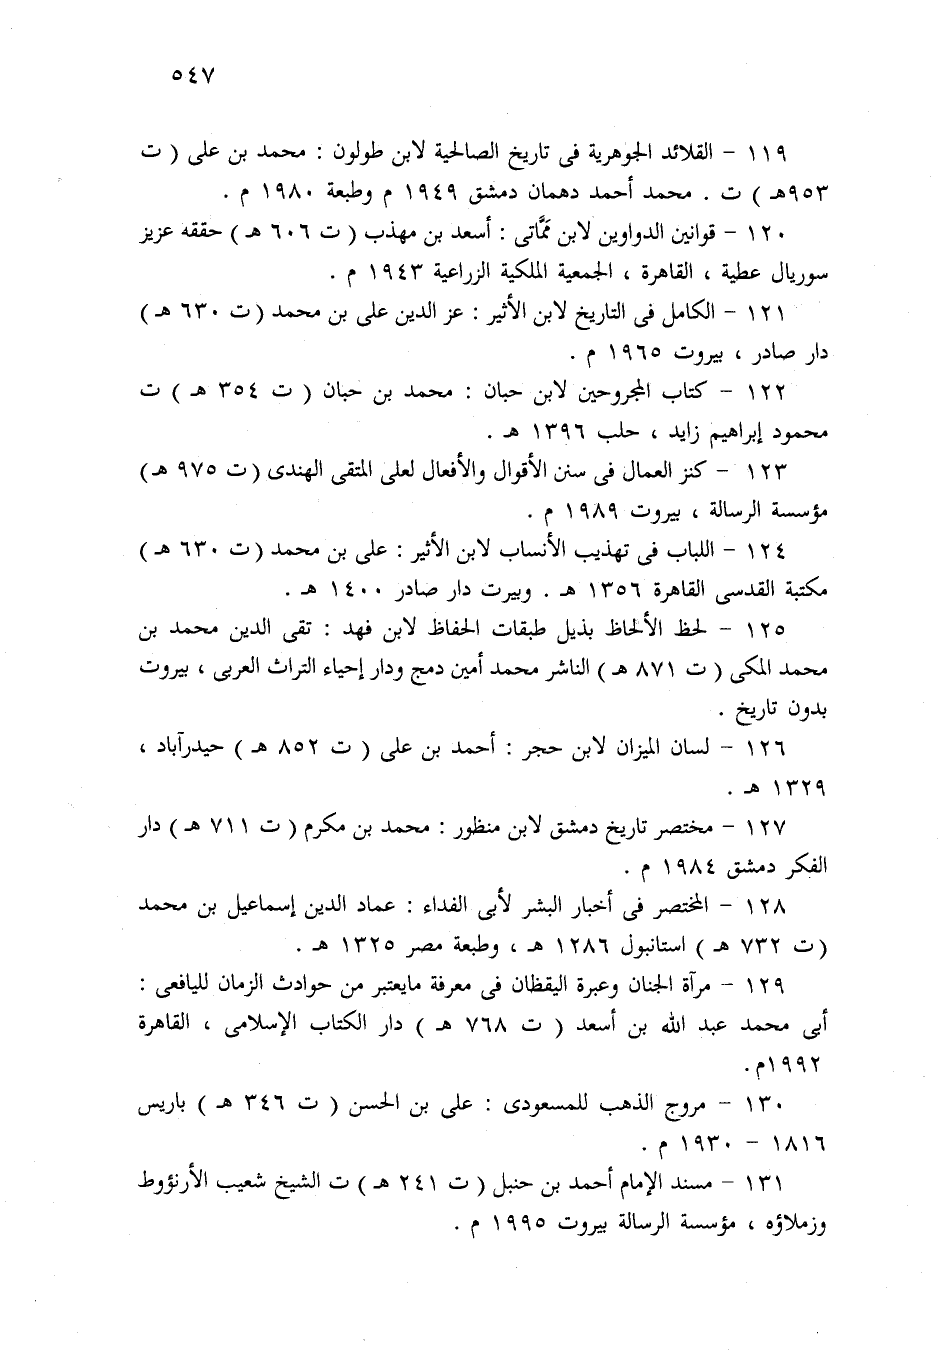 ٥٤٧
١١٩ - القلائد الجوهرية فى تاريخ الصالحية لابن طولون : محمد بن على ( ت
٩٥٣هـ ) ت . محمد أحمد دهمان دمشق ١٩٤٩ م وطبعة ١٩٨٠ م .
١٢٠ - قوانين الدواوين لابن ممَّاتى : أسعد بن مهذب ( ت ٦٠٦ هـ ) حققه عزيز
سوريال عطية ، القاهرة ، الجمعية الملكية الزراعية ١٩٤٣ م .
١٢١ - الكامل فى التاريخ لابن الأثير : عز الدين على بن محمد ( ت ٦٣٠ هـ )
دار صادر ، بيروت ١٩٦٥ م .
١٢٢ - كتاب المجروحين لابن حبان : محمد بن حبان ( ت ٣٥٤ هـ ) ت
محمود إبراهيم زايد ، حلب ١٣٩٦ هـ .
١٢٣ - كنز العمال فى سنن الأقوال والأفعال لعلى المتقى الهندى ( ت ٩٧٥ هـ )
مؤسسة الرسالة ، بيروت ١٩٨٩ م .
١٢٤ - اللباب فى تهذيب الأنساب لابن الأثير : على بن محمد ( ت ٦٣٠ هـ )
مكتبة القدسى القاهرة ١٣٥٦ هـ . وبيرت دار صادر ١٤٠٠ هـ .
١٢٥ - لحظ الألحاظ بذيل طبقات الحفاظ لابن فهد : تقى الدين محمد بن
محمد المكى ( ت ٨٧١ هـ ) الناشر محمد أمين دمج ودار إحياء التراث العربى ، بيروت
بدون تاريخ .
١٢٦ - لسان الميزان لابن حجر : أحمد بن على ( ت ٨٥٢ هـ ) حيدرآباد ،
١٣٢٩ هـ .
١٢٧ - مختصر تاريخ دمشق لابن منظور : محمد بن مكرم ( ت ٧١١ هـ ) دار
الفكر دمشق ١٩٨٤ م .
١٢٨ - المختصر فى أخبار البشر لأبى الفداء : عماد الدين إسماعيل بن محمد
( ت ٧٣٢ هـ ) استانبول ١٢٨٦ هـ ، وطبعة مصر ١٣٢٥ هـ .
١٢٩ - مرآة الجنان وعبرة اليقظان فى معرفة مايعتبر من حوادث الزمان لليافعى :
أبى محمد عبد الله بن أسعد ( ت ٧٦٨ هـ ) دار الكتاب الإسلامى ، القاهرة
١٩٩٢م.
١٣٠ - مروج الذهب للمسعودى : على بن الحسن ( ت ٣٤٦ هـ ) باريس
١٨١٦ - ١٩٣٠ م .
١٣١ - مسند الإمام أحمد بن حنبل ( ت ٢٤١ هـ ) ت الشيخ شعيب الأرنؤوط
وزملاؤه ، مؤسسة الرسالة بيروت ١٩٩٥ م .